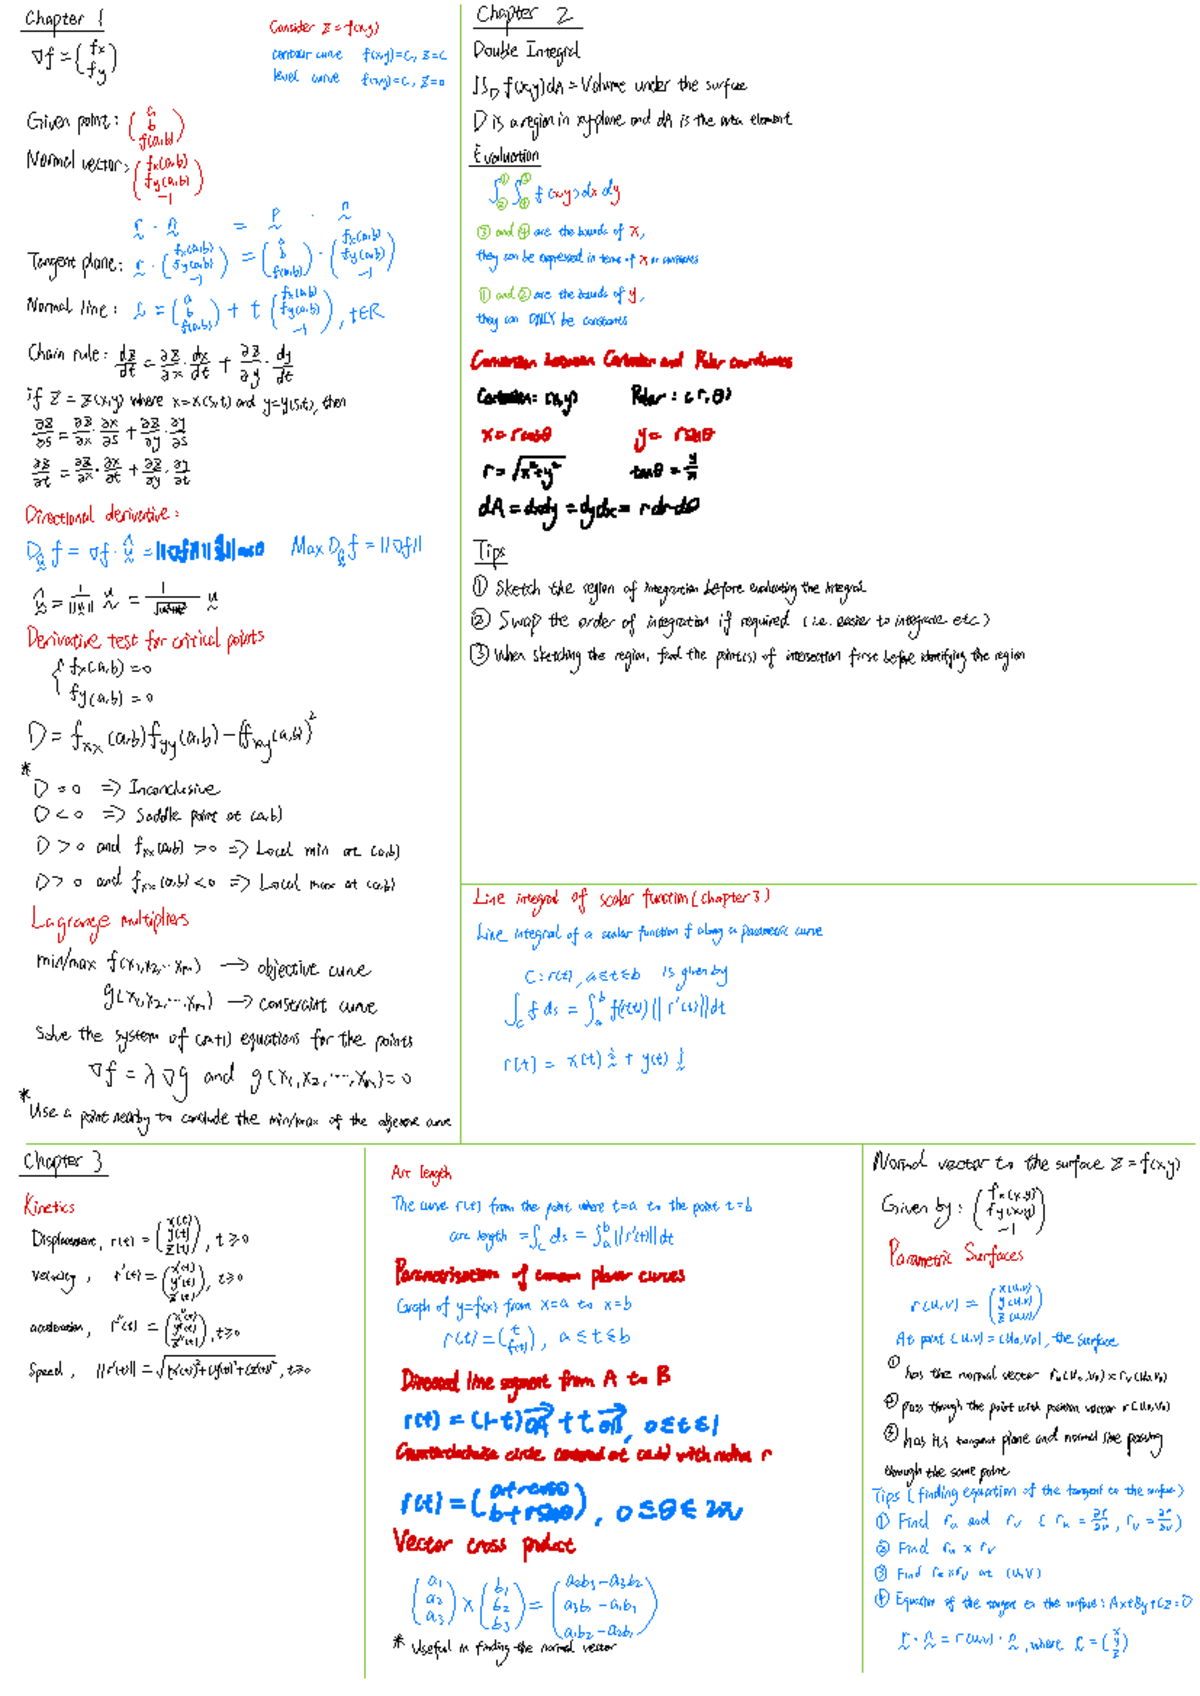 Chapter 1
∇f = (fx fy)
Consider z = f(x,y)
contour curve f(x,y)=c, z=c
level curve f(x,y)=c, z=0
Given point: (a b f(a,b))
Normal vector: (fx(a,b) fy(a,b) -1)
r · n = p · n
Tangent plane: r · (fx(a,b) fy(a,b) -1) = (a b f(a,b)) · (fx(a,b) fy(a,b) -1)
Normal line: r = (a b f(a,b)) + t (fx(a,b) fy(a,b) -1), t∈R
Chain rule: dz/dt = ∂z/∂x · dx/dt + ∂z/∂y · dy/dt
if z = z(x,y) where x=x(s,t) and y=y(s,t), then
∂z/∂s = ∂z/∂x · ∂x/∂s + ∂z/∂y · ∂y/∂s
∂z/∂t = ∂z/∂x · ∂x/∂t + ∂z/∂y · ∂y/∂t
Directional derivative:
Dûf = ∇f · û = ||∇f|| ||û|| cosθ Max Dûf = ||∇f||
û = 1/||u|| u = 1/ u
Derivative test for critical points
{ fx(a,b) = 0
fy(a,b) = 0
D = fxx(a,b) fyy(a,b) - (fxy(a,b))²
*
D = 0 => Inconclusive
D < 0 => Saddle point at (a,b)
D > 0 and fxx(a,b) > 0 => Local min at (a,b)
D > 0 and fxx(a,b) < 0 => Local max at (a,b)
Lagrange multipliers
min/max f(x1,x2,...xm) → objective curve
g(x1,x2,...,xm) → constraint curve
Solve the system of (n+1) equations for the points
∇f = λ∇g and g(x1,x2,...,xm)=0
* Use a point nearby to conclude the min/max of the objective curve
Chapter 2
Double Integral
∫∫D f(x,y)dA = Volume under the surface
D is a region in xy-plane and dA is the area element
Evaluation
∫②① ∫④③ f(x,y)dx dy
③ and ④ are the bounds of x,
they can be expressed in terms of x or constants
① and ② are the bounds of y,
they can ONLY be constants
Conversion between Cartesian and Polar coordinates
Cartesian: (x,y) Polar: (r,θ)
x = rcosθ y = rsinθ
r = √x²+y² tanθ = y/x
dA = dxdy = dydx = rdrdθ
Tips
① Sketch the region of integration before evaluating the integral
② Swap the order of integration if required (i.e. easier to integrate etc)
③ When sketching the region, find the point(s) of intersection first before identifying the region
Line integral of scalar function (chapter 3)
Line integral of a scalar function f along a parametric curve
C: r(t), a≤t≤b is given by
∫c f ds = ∫ab f(r(t)) ||r'(t)||dt
r(t) = x(t) i + y(t) j
Chapter 3
Kinetics
Displacement, r(t) = (x(t) y(t) z(t)), t≥0
velocity, r'(t) = (x'(t) y'(t) z'(t)), t≥0
acceleration, r''(t) = (x''(t) y''(t) z''(t)), t≥0
Speed, ||r'(t)|| = √(x'(t))²+(y'(t))²+(z'(t))², t≥0
Arc length
The curve r(t) from the point where t=a to the point t=b
arc length = ∫c ds = ∫ab ||r'(t)||dt
Parametrisation of common planar curves
Graph of y=f(x) from x=a to x=b
r(t) = (t f(t)), a≤t≤b
Directed line segment from A to B
r(t) = (1-t)OA + tOB, 0≤t≤1
Counterclockwise circle centered at (a,b) with radius r
r(t) = (a+rcosθ b+rsinθ), 0≤θ≤2π
Vector cross product
(a1 a2 a3) × (b1 b2 b3) = (a2b3-a3b2 a3b1-a1b3 a1b2-a2b1)
* Useful in finding the normal vector
Normal vector to the surface z = f(x,y)
Given by: (fx(x,y) fy(x,y) -1)
Parametric Surfaces
r(u,v) = (x(u,v) y(u,v) z(u,v))
At point (u,v) = (u0,v0), the surface
① has the normal vector ru(u0,v0) × rv(u0,v0)
② pass through the point with position vector r(u0,v0)
③ has its tangent plane and normal line passing
through the same point
Tips (finding equation of the tangent to the surface)
① Find ru and rv (ru = ∂r/∂u, rv = ∂r/∂v)
② Find ru × rv
③ Find ru×rv at (u,v)
④ Equation of the tangent to the surface: Ax+By+Cz=D
r · n = r(u,v) · n, where r = (x y z)